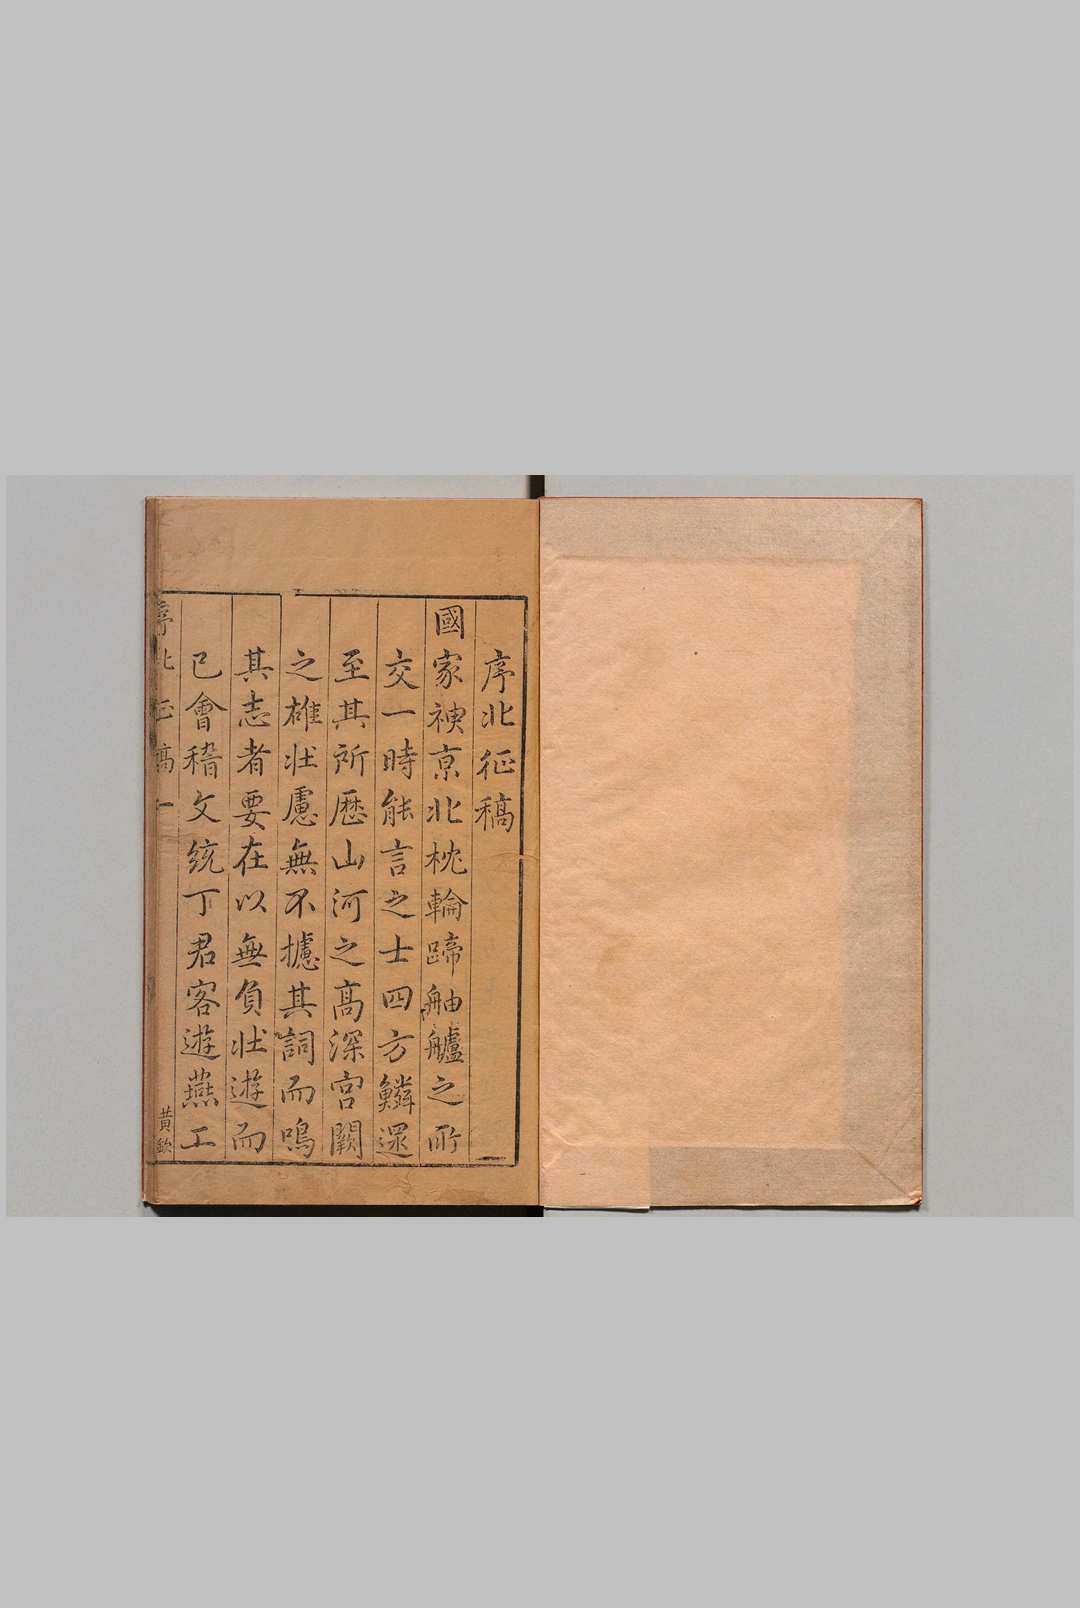 序北征稿
國家神京北枕輪蹄舳艫之所
交一時能言之士四方鱗還
至其所歷山河之高深宮闕
之雄壯慮無不攄其詞而鳴
其志者要在以無負壯遊而
已會稽文統丁君客遊燕工
序北征稿 一
黄鈫